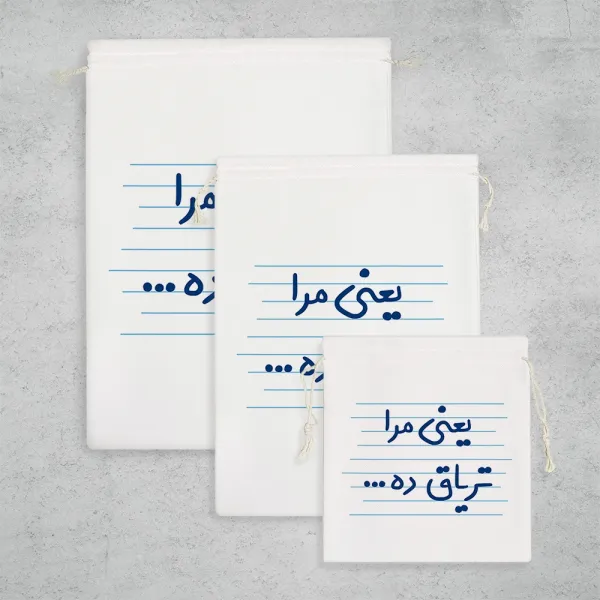 مرا
ده...
یعنی مرا
ده...
یعنی مرا
تریاق ده...